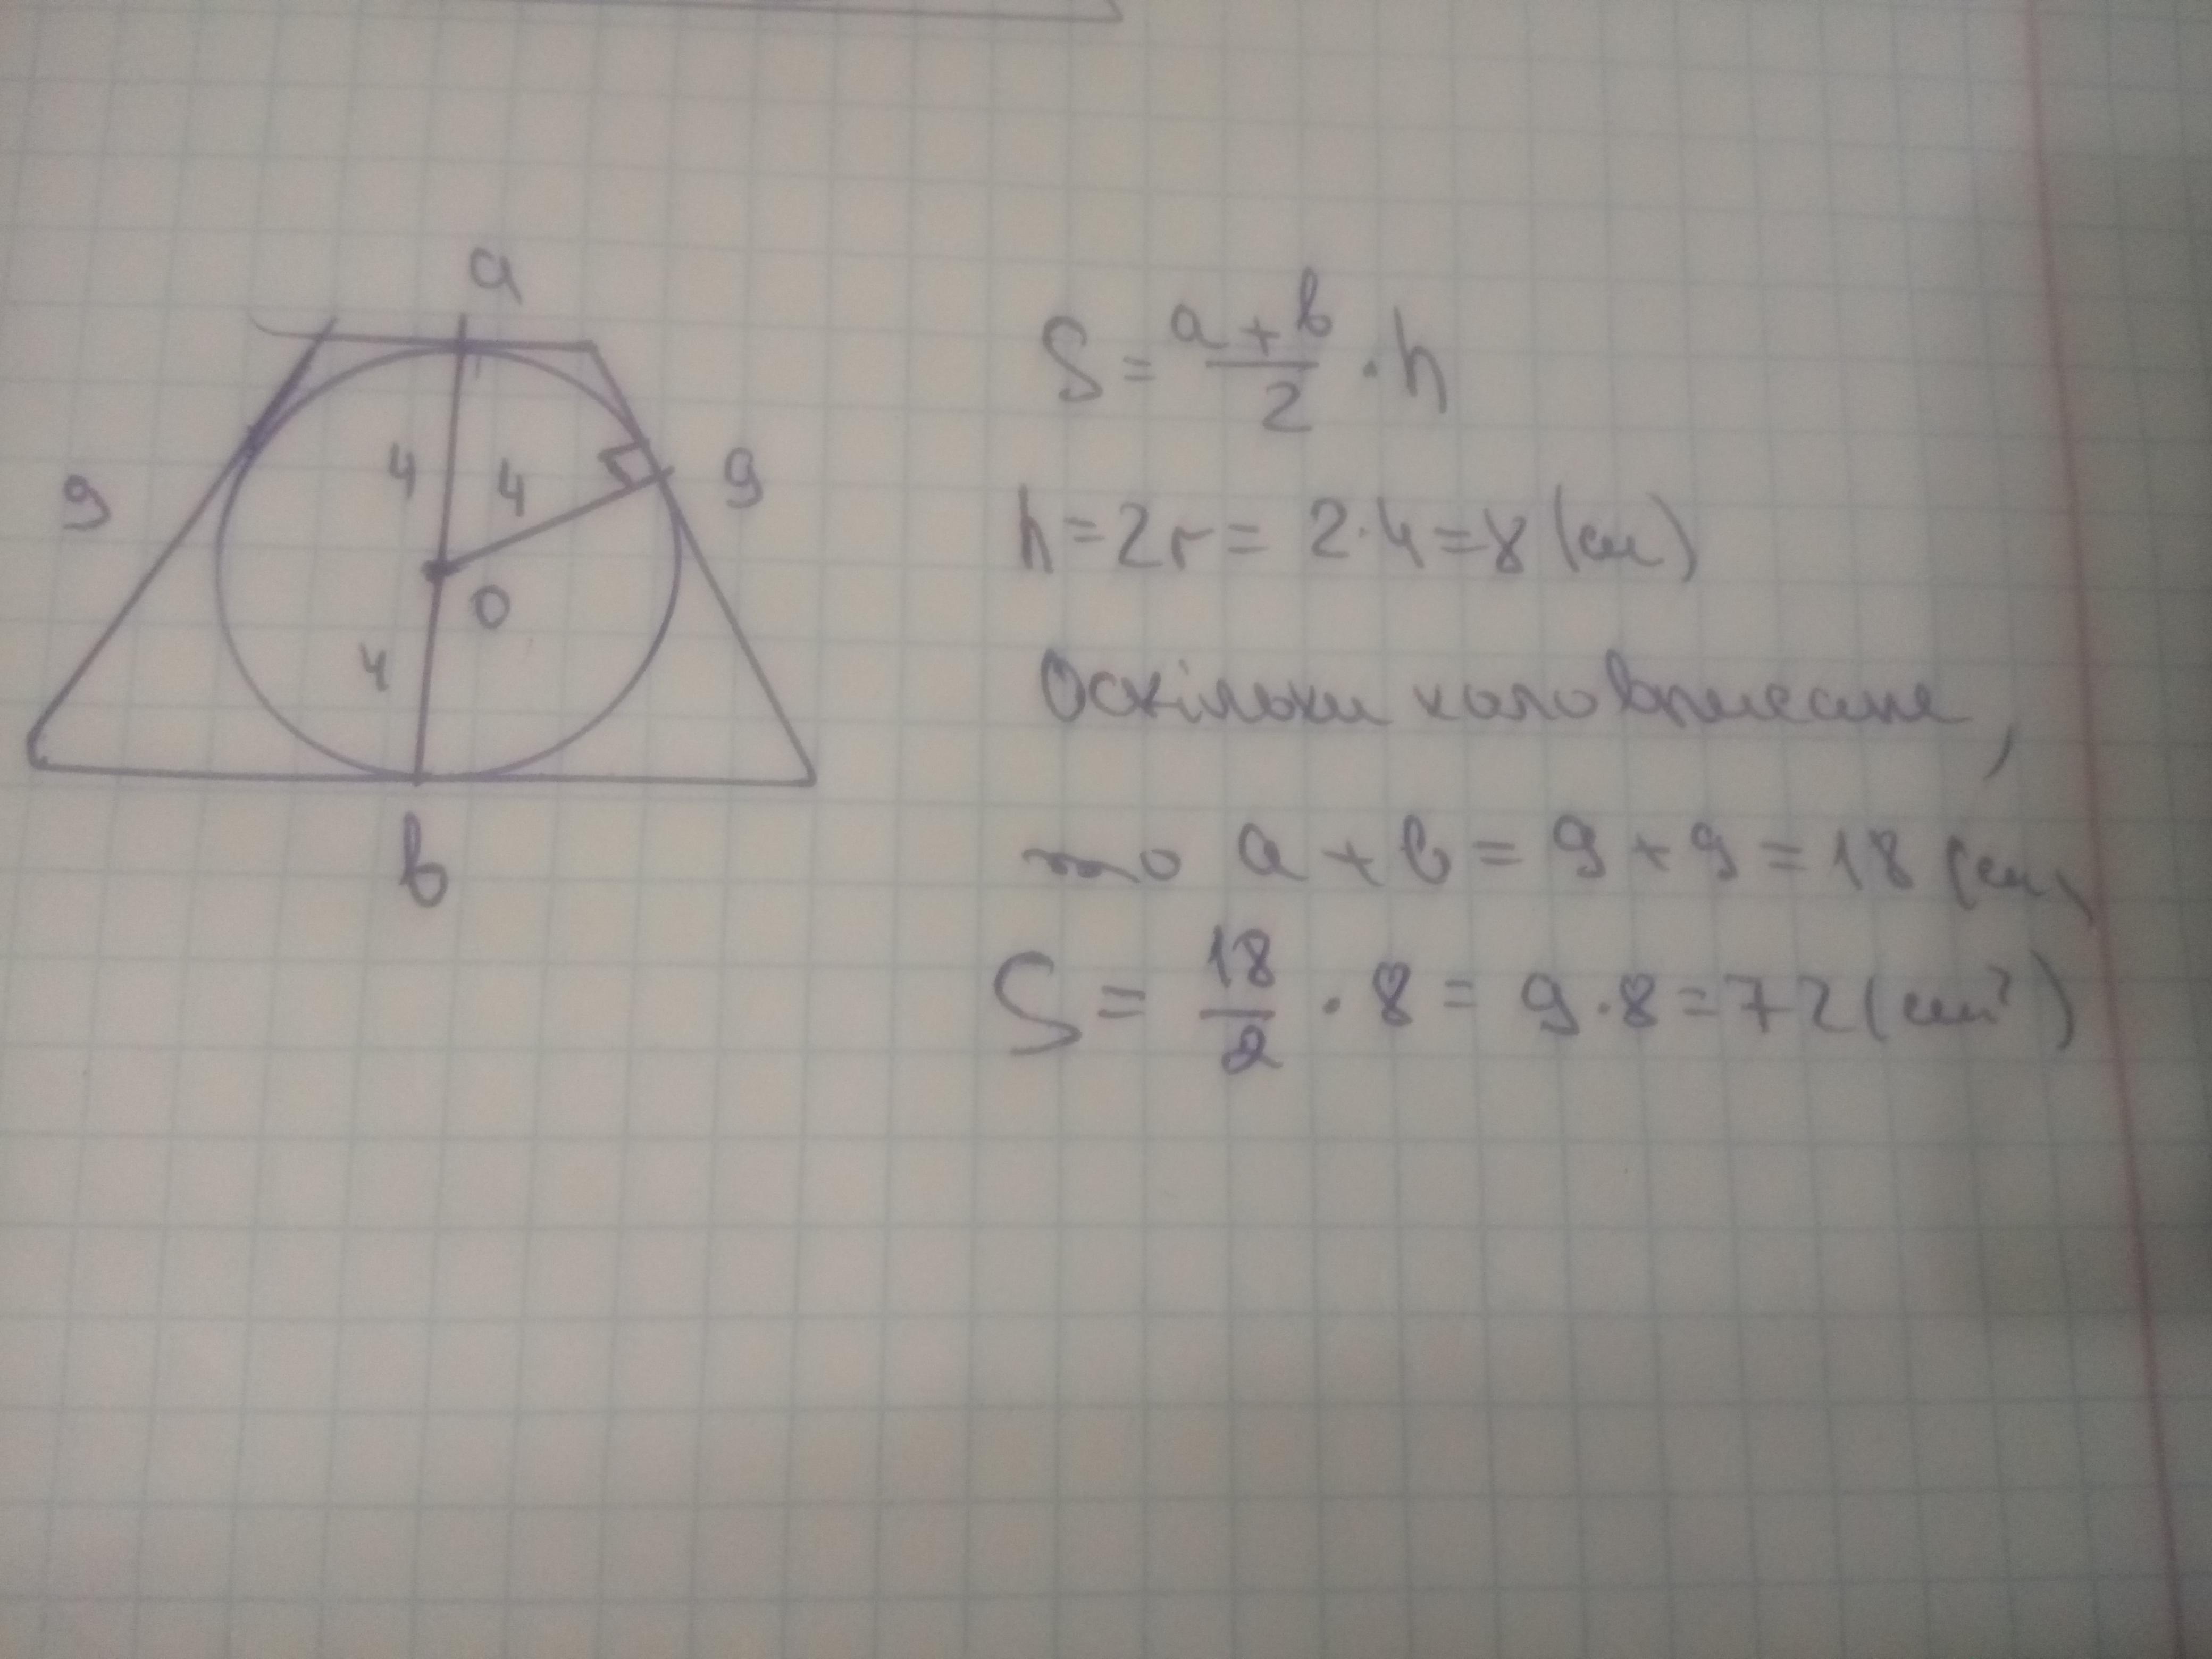 a
9
4
4
9
0
4
b
S = a + b / 2 · h
h = 2r = 2 · 4 = 8 (см)
Оскільки коло вписане,
то a + b = 9 + 9 = 18 (см)
S = 18 / 2 · 8 = 9 · 8 = 72 (см²)